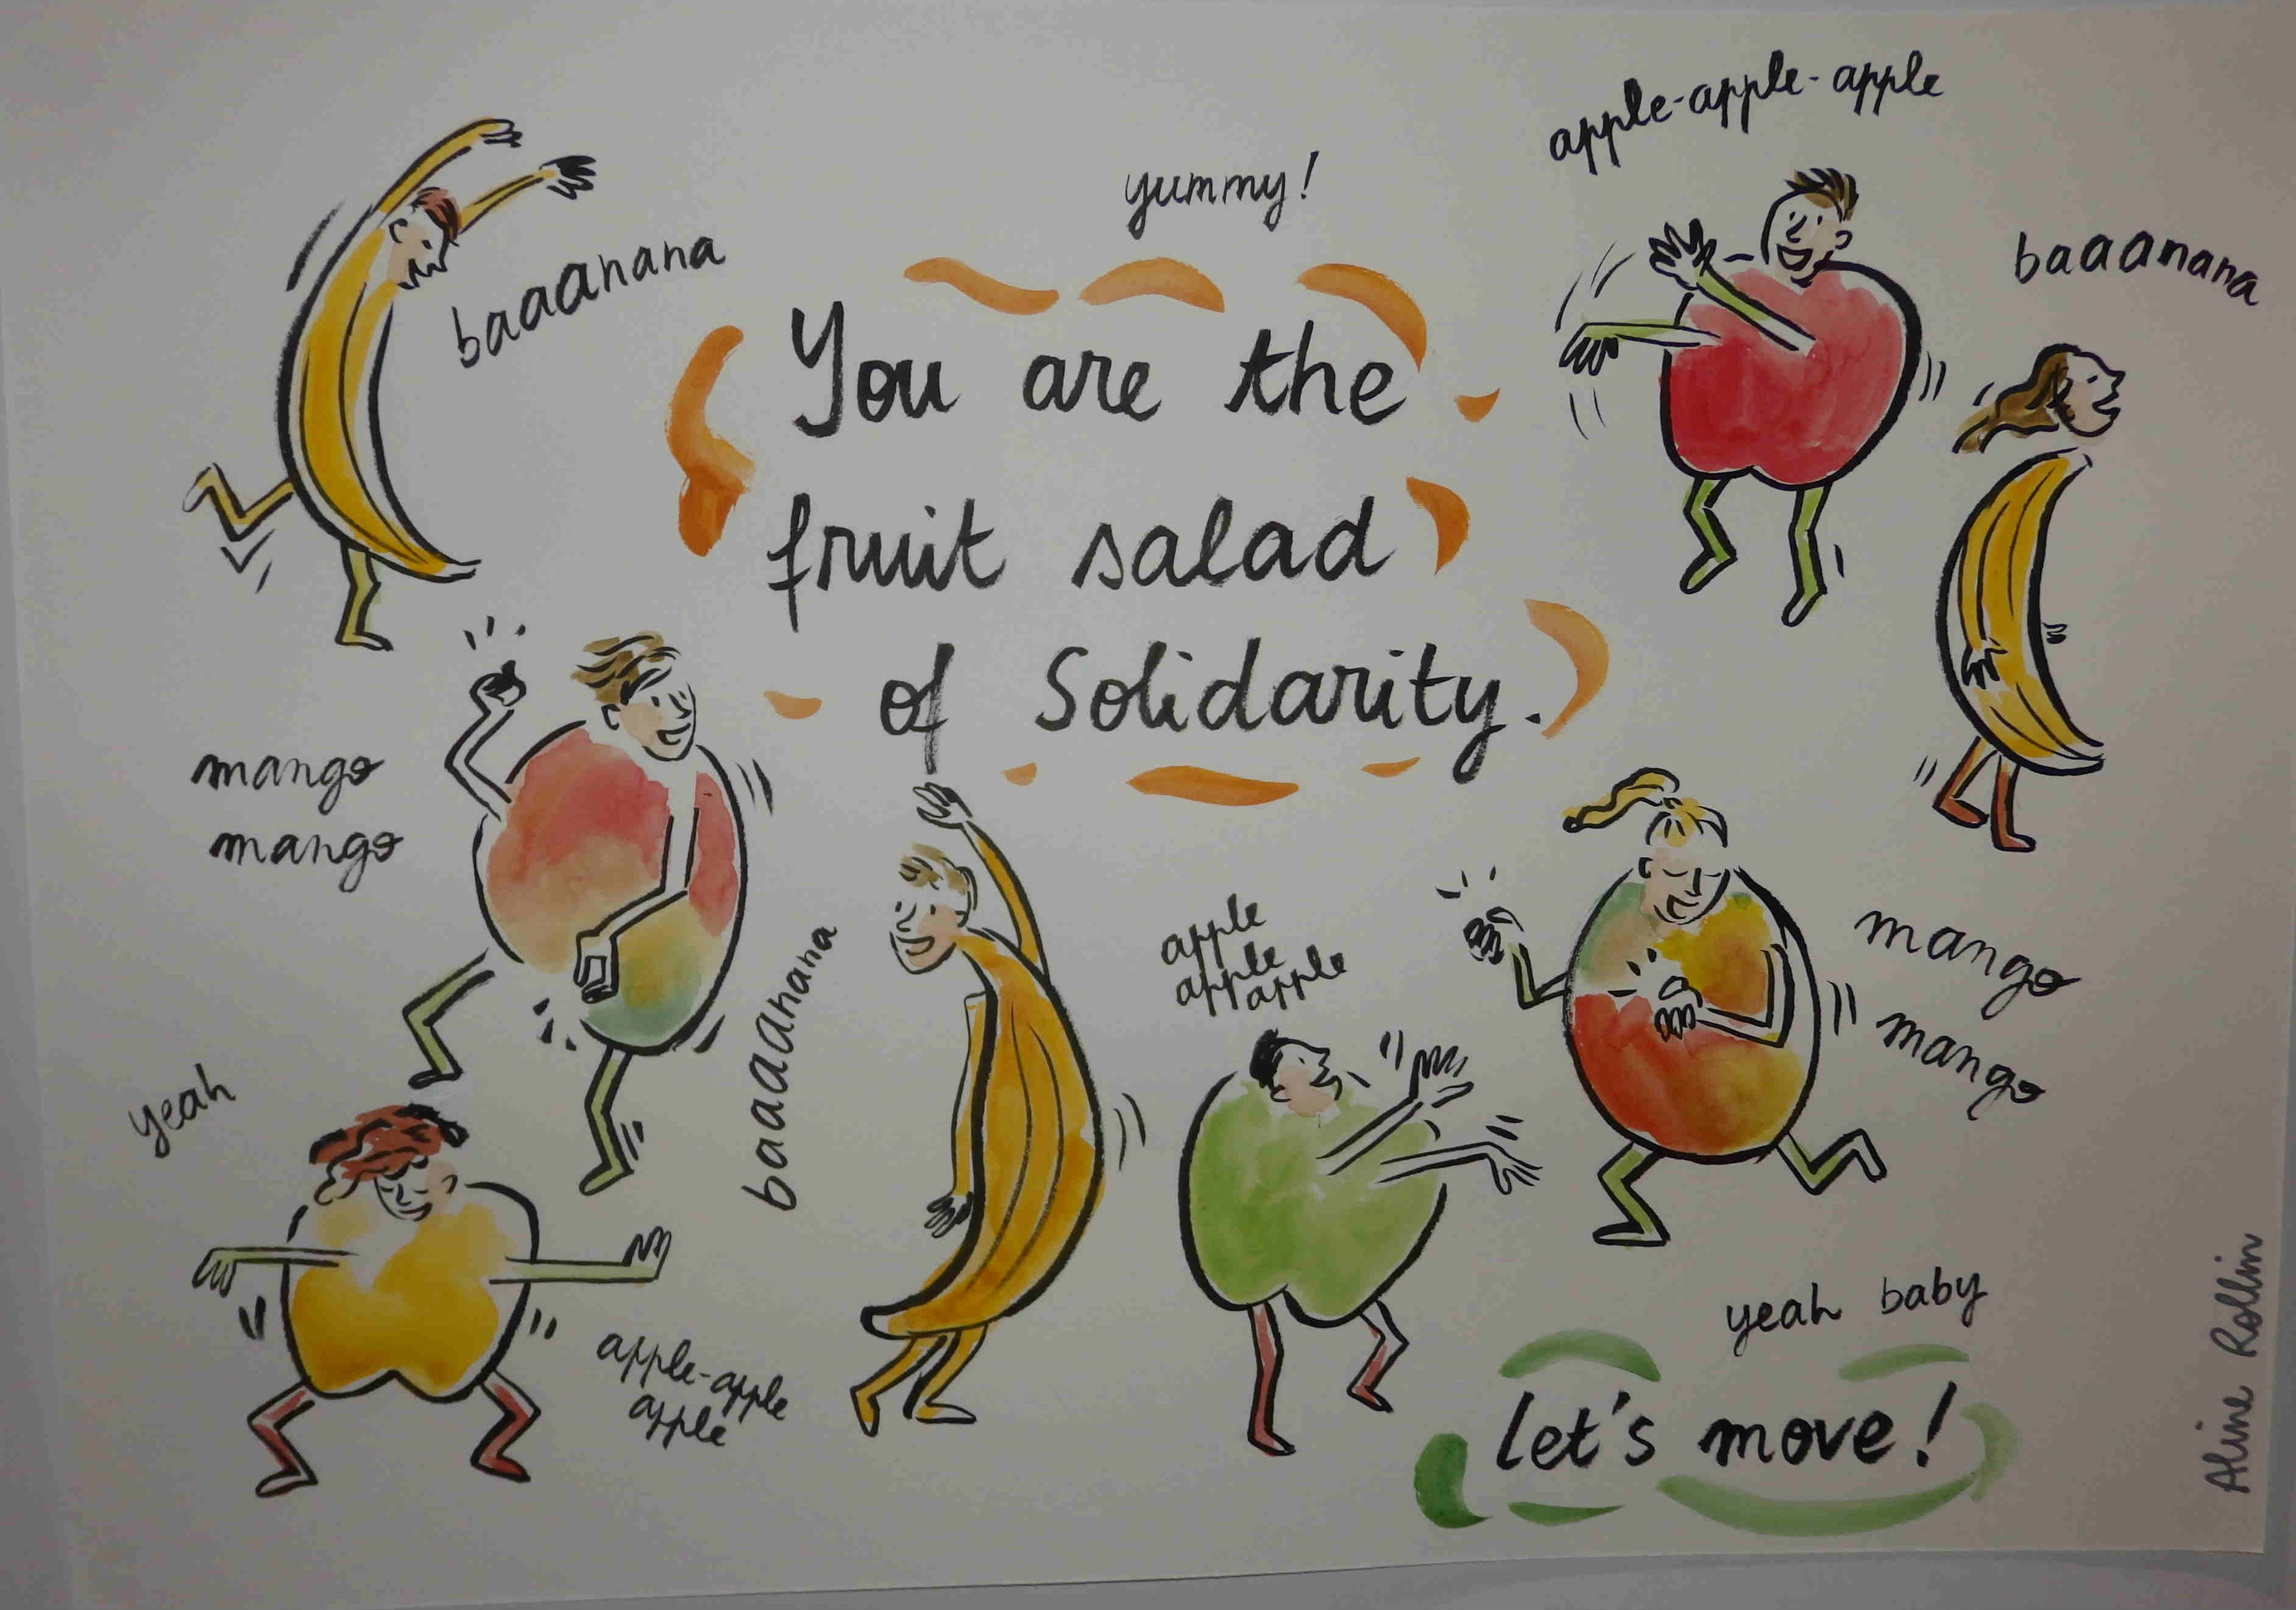 apple-apple-apple
yummy!
baaanana
baaanana
You are the
fruit salad
of Solidarity.
mango
mango
baaanana
apple
apple
apple
mango
mango
yeah
apple-apple
apple
yeah baby
let's move!
Aline Rollin